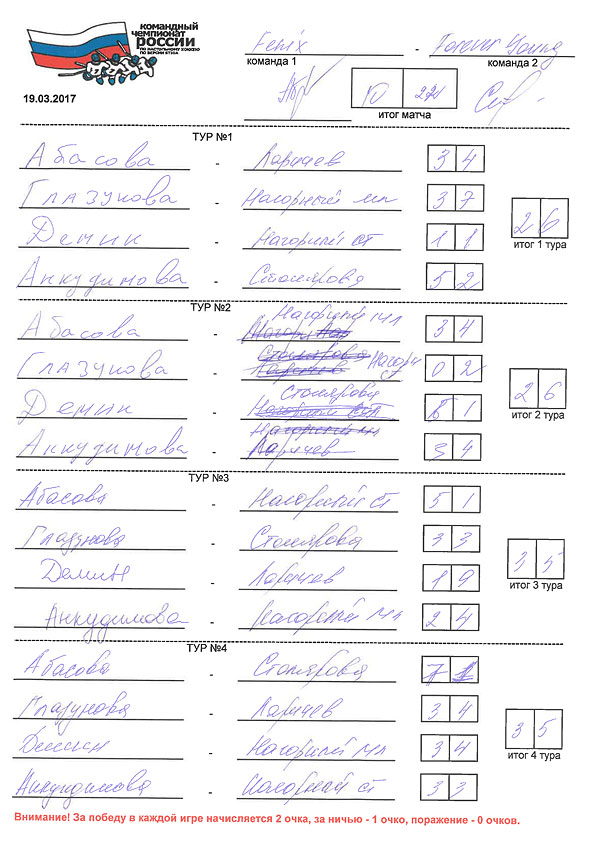 командный
чемпионат
россии
по настольному хоккею
по версии ETHA
Fenix - Forever Young
команда 1 команда 2
19.03.2017
10 22
итог матча
ТУР №1
Абасова - Ларичев 3 4
Глазунова - Нагорный мл 3 7
Демин - Нагорный ст 1 1
Анкудимова - Столярова 5 2
2 6
итог 1 тура
ТУР №2
Абасова - Нагорный мл 3 4
Глазунова - Нагорн ст 0 2
Демин - Столярова 1
Анкудимова - Ларичев 3 4
2 6
итог 2 тура
ТУР №3
Абасова - Нагорный ст 5 1
Глазунова - Столярова 3 3
Демин - Ларичев 1 9
Анкудимова - Нагорный мл 2 4
3 5
итог 3 тура
ТУР №4
Абасова - Столярова 7
Глазунова - Ларичев 3 4
Демин - Нагорный мл 3 4
Анкудимова - Нагорный ст 3 3
3 5
итог 4 тура
Внимание! За победу в каждой игре начисляется 2 очка, за ничью - 1 очко, поражение - 0 очков.